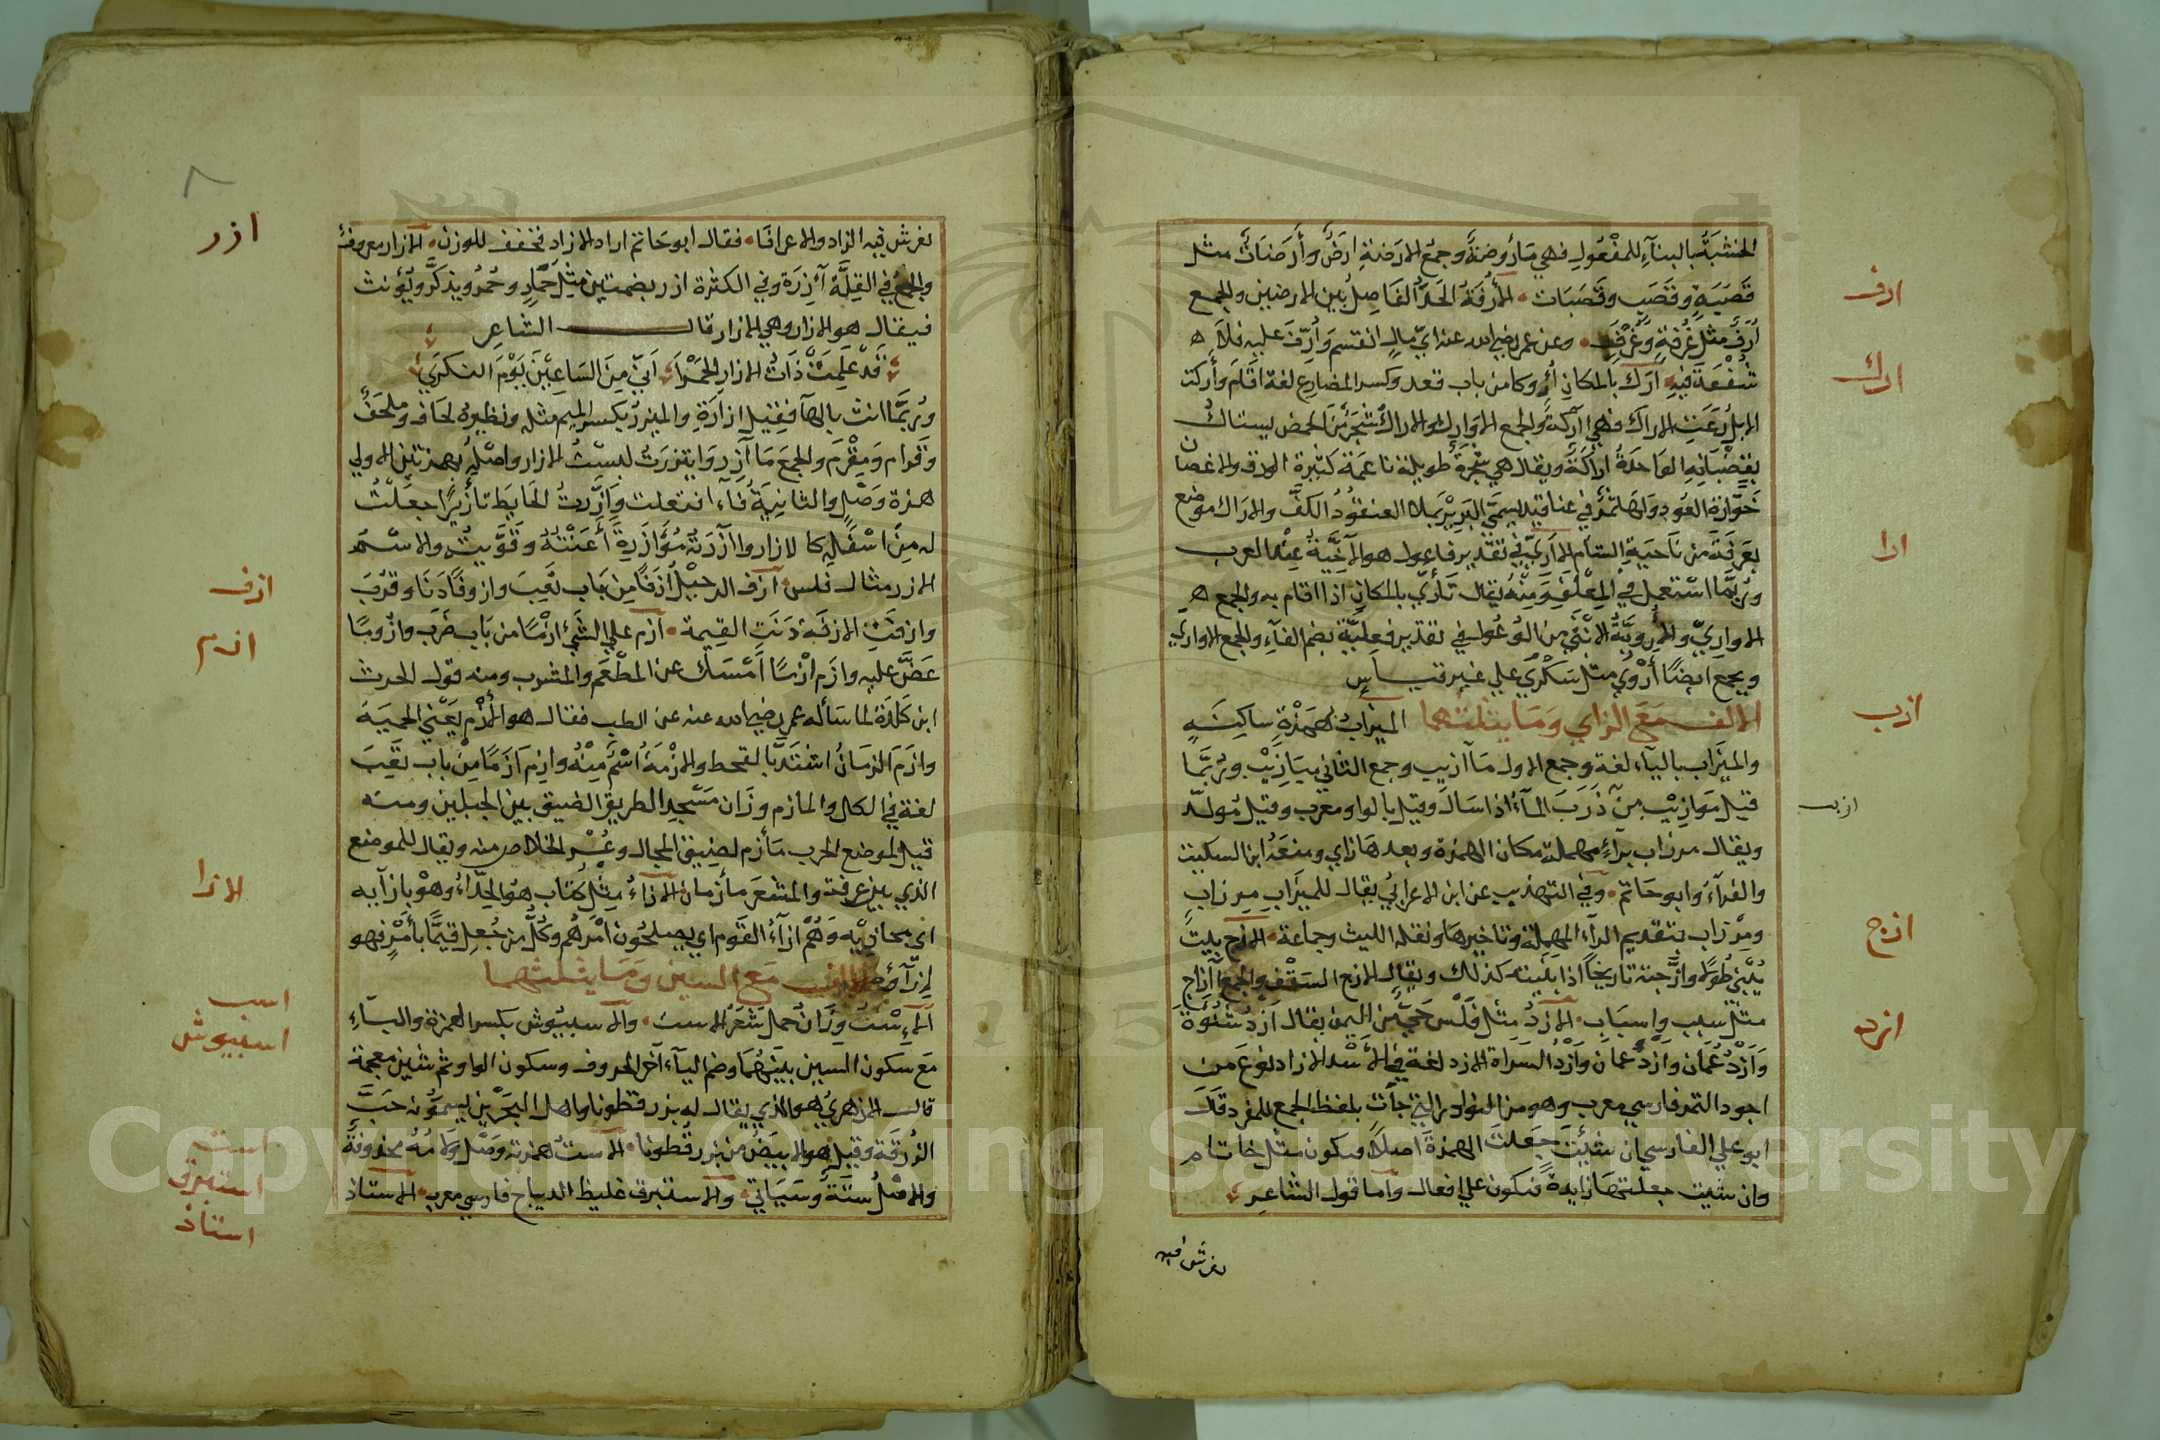 الخشبة بالبناء للمفعول فهي مأروضة وجمع الارضة ارض وأرضات مثل
قصبة وقصب وقصبات الأرفة الحد الفاصل بين الارضين والجمع
أرف مثل غرفة وغرف وعن عمر رضي الله عنه اي مال انقسم وأرف عليه فلا
شفعة فيه ارك بالمكان أروكا من باب قعد وكسر المضارع لغة اقام وأركت
الابل رعت الاراك فهي آركة والجمع الاوارك والاراك شجر من الحمض يستاك
بقضبانه الواحدة اراكة ويقال هي شجرة طويلة ناعمة كثيرة الورق والاغصان
خوارة العود ولها ثمر في عناقيد يسمى البرير يملا العنقود الكف والاراك موضع
بعرفة من ناحية الشام الآري في تقدير فاعول هو الآخية عند العرب
وربما استعمل في المعلف ومنه يقال تأري بالمكان اذا اقام به والجمع
الاواري والأروية الانثى من الوعول في تقدير فعلية بضم الفاء والجمع الاراوي
ويجمع ايضا أروى مثل سكرى علي غير قياس
الالف مع الزاي وما يثلثهما الميزاب بهمزة ساكنة
والميزاب بالياء لغة وجمع الاول مآازيب وجمع الثاني ميازيب وربما
قيل موازيب من ذرب الماء اذا سال وقيل بالواو معرب وقيل مولد
ويقال مرزاب براء مهملة مكان الهمزة وبعدها زاي ومنعه ابن السكيت
والفرآء وابو حاتم وفي التهذيب عن ابن الاعرابي يقال للميزاب مرزاب
ومزراب بتقديم الرآء المهملة وتاخيرها ونقله الليث وجماعة الازج بيت
يبني طولا وازجته تازيجا اذا بنيته كذلك ويقال الازج السقف والجمع آزاج
مثل سبب واسباب الازد مثل فلس حي من اليمن يقال ازد شنوءة
وأزد عمان وأزد عمان وأزد السراة الازد لغة في الأسد الازاد نوع من
اجود التمر فارسي معرب وهو من النوادر التي جآت بلفظ الجمع للمفرد قال
ابو علي الفارسي ان شئت جعلت الهمزة اصلا فيكون مثل خاتام
وان شيت جعلتها زايدة فيكون علي افعال وأما قول الشاعر
ارف
ارك
ارا
ازب
ازب
ازج
ازد
يغرس فيه الزاد والاعرافا فقال ابو حاتم اراد الازاد فخفف للوزن الازار معروف
والجمع في القلة آزرة وفي الكثرة ازر بضمتين مثل حمار وحمر ويذكر ويؤنث
فيقال هو الازار وهي الازار قال الشاعر
قد علمت ذات الازار الحمرا اني من الساعين يوم النكرى
وربما انث بالهاء فقيل ازارة والمئزر بكسر الميم مثله ونظيره لحاف وملحف
وقرام ومقرم والجمع مآازر وايتزرت لبست الازار واصله بهمزتين الاولي
همزة وصل والثانية فآء افتعلت وازرت الحايط تأزيرا جعلت
له من اسفله كالازار وآازرته مؤازرة أعنته وقويته والاسم
الازر مثال فلس ازف الرحيل ازفا من باب تعب وازوفا دنا وقرب
وازفت الازفة دنت القيمة ازم علي الشيء ازما من باب ضرب وازوما
عض عليه وازم ازما امسك عن المطعم والمشرب ومنه قول الحرث
ابن كلدة لما سأله عمر رضي الله عنه عن الطب فقال هو الأزم يعني الحمية
وازم الزمان اشتد بالقحط والازمة اسم منه وازم ازما من باب تعب
لغة في الكل والمازم وزان مسجد الطريق الضيق بين الجبلين ومنه
قيل لموضع الحرب مأزم لضيق المجال وعسر الخلاص منه ويقال للموضع
الذي بين عرفة والمشعر مأزمان الازاء مثل كتاب هو الحذاء وهو بازآيه
اي محاذيه وهم ازآء القوم اي يصلحون امرهم وكل من جعل قيما بأمر فهو
ازآؤه الالف مع السين وما يثلثهما
الاسب وزان حمل شعر الاست والاسبيوش بكسر الهمزة والبآء
مع سكون السين بينهما وضم اليآء آخر الحروف وسكون الواو ثم شين معجمة
قال الازهري هو الذي يقال له بزر قطونا واهل البحرين يسمونه حب
الزرقة وقيل هو الابيض من بزر قطونا الاست همزته وصل ولامه محذوفة
والاصل سته وسياتي والاستبرق غليظ الديباج فارسي معرب الاستاذ
٨
ازر
ازف
ازم
الازا
اسب
اسبيوش
است
استبرق
استاذ
Copyright © King Saud University